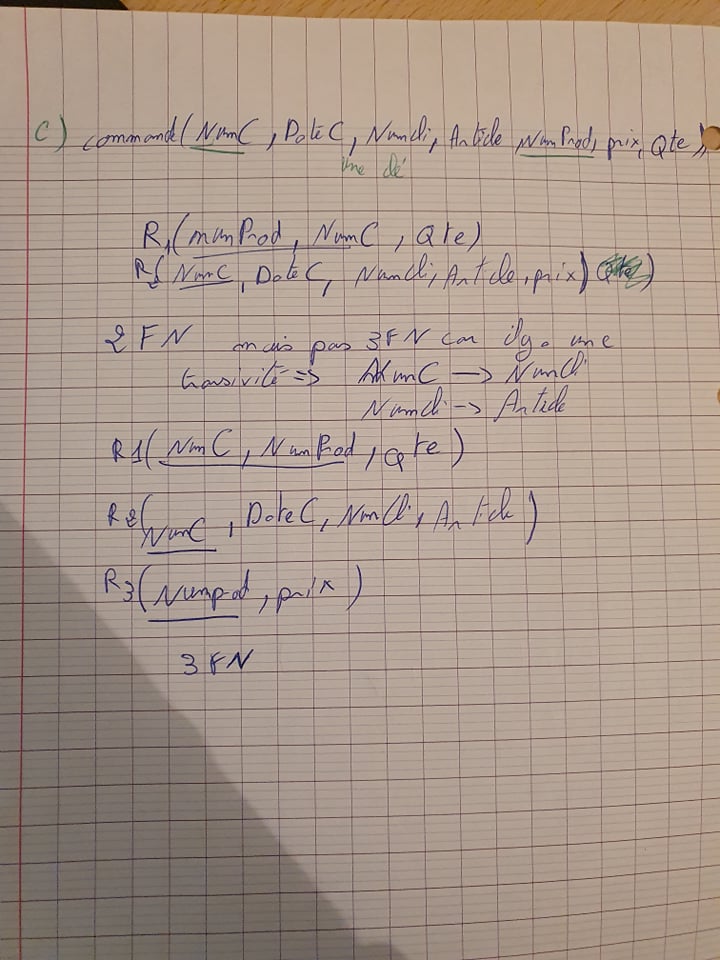 c) commande( NumC , DateC , Numcli , Article NumProd, prix, Qte )
une clé
R1( numProd , NumC , Qte)
R2( NumC , DateC , Numcli , Article , prix) )
2 FN mais pas 3FN car il y a une
transivité => NumC -> Numcli
Numcli -> Article
R1( NumC , NumProd , Qte )
R2( NumC , DateC , NumCli , Article )
R3( Numprod , prix )
3 FN